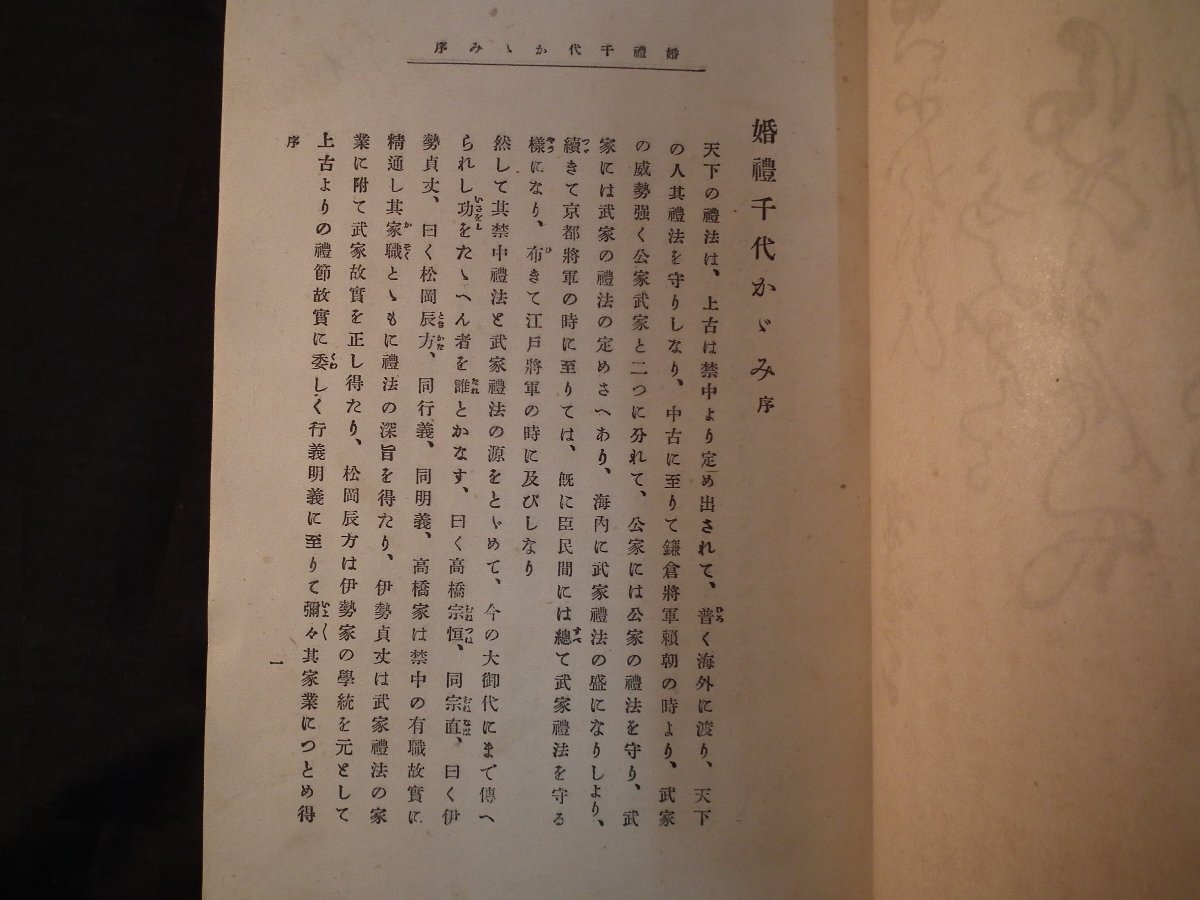 婚禮千代かゝみ序
婚禮千代かゞみ序
天下の禮法は、上古は禁中より定め出されて、普く海外に渡り、天下
の人其禮法を守りしなり、中古に至りて鎌倉將軍賴朝の時より、武家
の威勢强く公家武家と二つに分れて、公家には公家の禮法を守り、武
家には武家の禮法の定めさへあり、海內に武家禮法の盛になりしより、
續きて京都將軍の時に至りては、旣に臣民間には總て武家禮法を守る
樣になり、布きて江戶將軍の時に及びしなり
然して其禁中禮法と武家禮法の源をとゞめて、今の大御代にまで傳へ
られし功をたゝへん者を誰とかなす、曰く高橋宗恒、同宗直、曰く伊
勢貞丈、曰く松岡辰方、同行義、同明義、高橋家は禁中の有職故實に
精通し其家職とゝもに禮法の深旨を得たり、伊勢貞丈は武家禮法の家
業に附て武家故實を正し得たり、松岡辰方は伊勢家の學統を元として
上古よりの禮節故實に委しく行義明義に至りて彌々其家業につとめ得
序
一